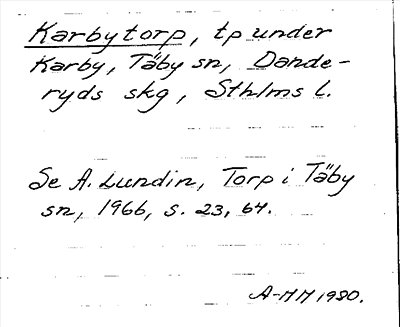 Karbytorp, tp under
Karby, Täby sn, Dande-
ryds skg, Sthlms l.
Se A. Lundin, Torp i Täby
sn, 1966, s. 23, 64.
A-MM 1980.